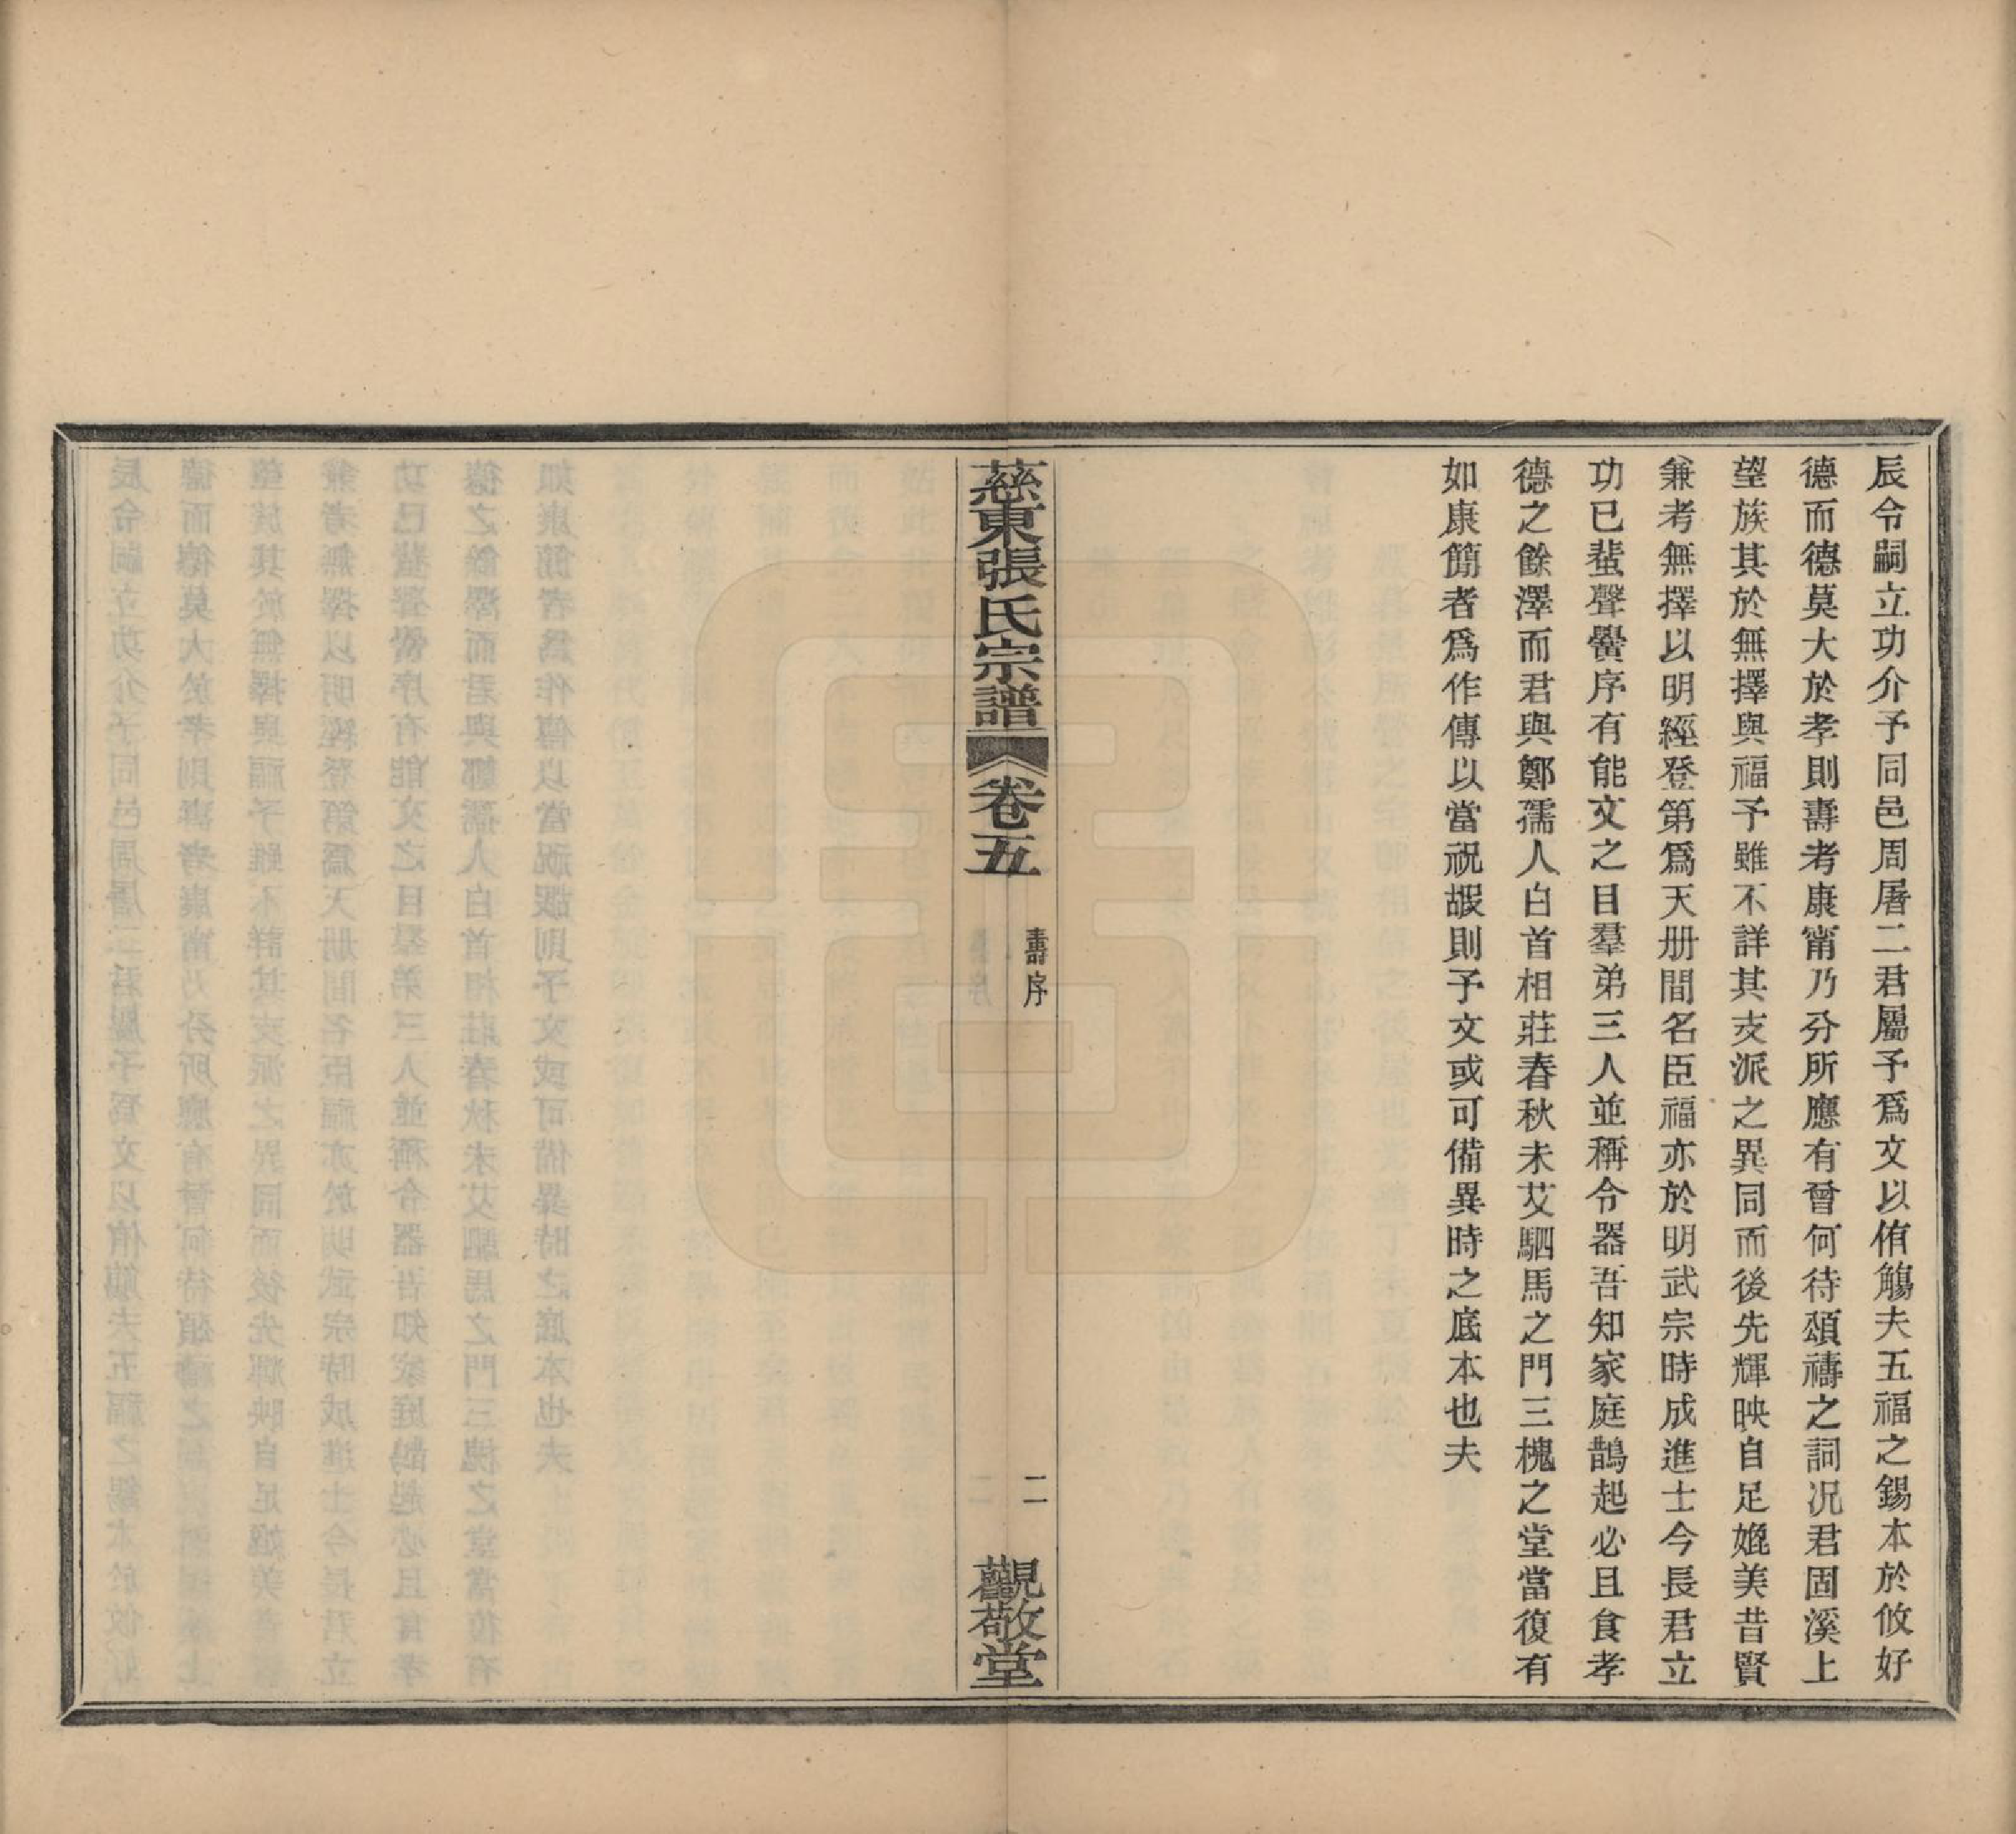 辰令嗣立功介予同邑周屠二君屬予爲文以侑觴夫五福之錫本於攸好
德而德莫大於孝則壽考康甯乃分所應有曾何待頌禱之詞況君固溪上
望族其於無擇與福予雖不詳其支派之異同而後先輝映自足媲美昔賢
兼考無擇以明經登第爲天册間名臣福亦於明武宗時成進士今長君立
功已蜚聲黌序有能文之目羣弟三人並稱令器吾知家庭鵲起必且食孝
德之餘澤而君與鄭孺人白首相莊春秋未艾駟馬之門三槐之堂當復有
如康簡者爲作傳以當祝嘏則予文或可備異時之底本也夫
慈東張氏宗譜 卷五 壽序 二 觀敬堂